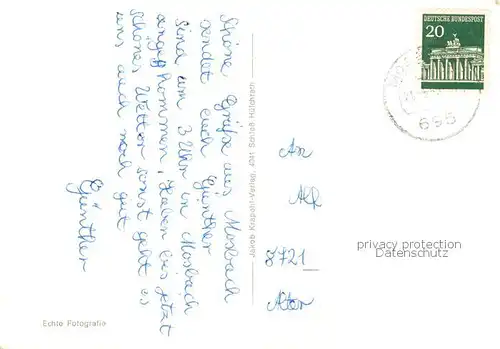 Schöne Grüße aus Mosbach
sendet euch Günther
Sind um 3 Uhr in Mosbach
angekommen, haben bis jetzt
schönes Wetter sonst geht es
uns auch noch gut
Günther
Echte Fotografie
Jakob Krapohl-Verlag, 4041 Schloß Hülchrath
DEUTSCHE BUNDESPOST
20
695
An
8721
privacy protection
Datenschutz